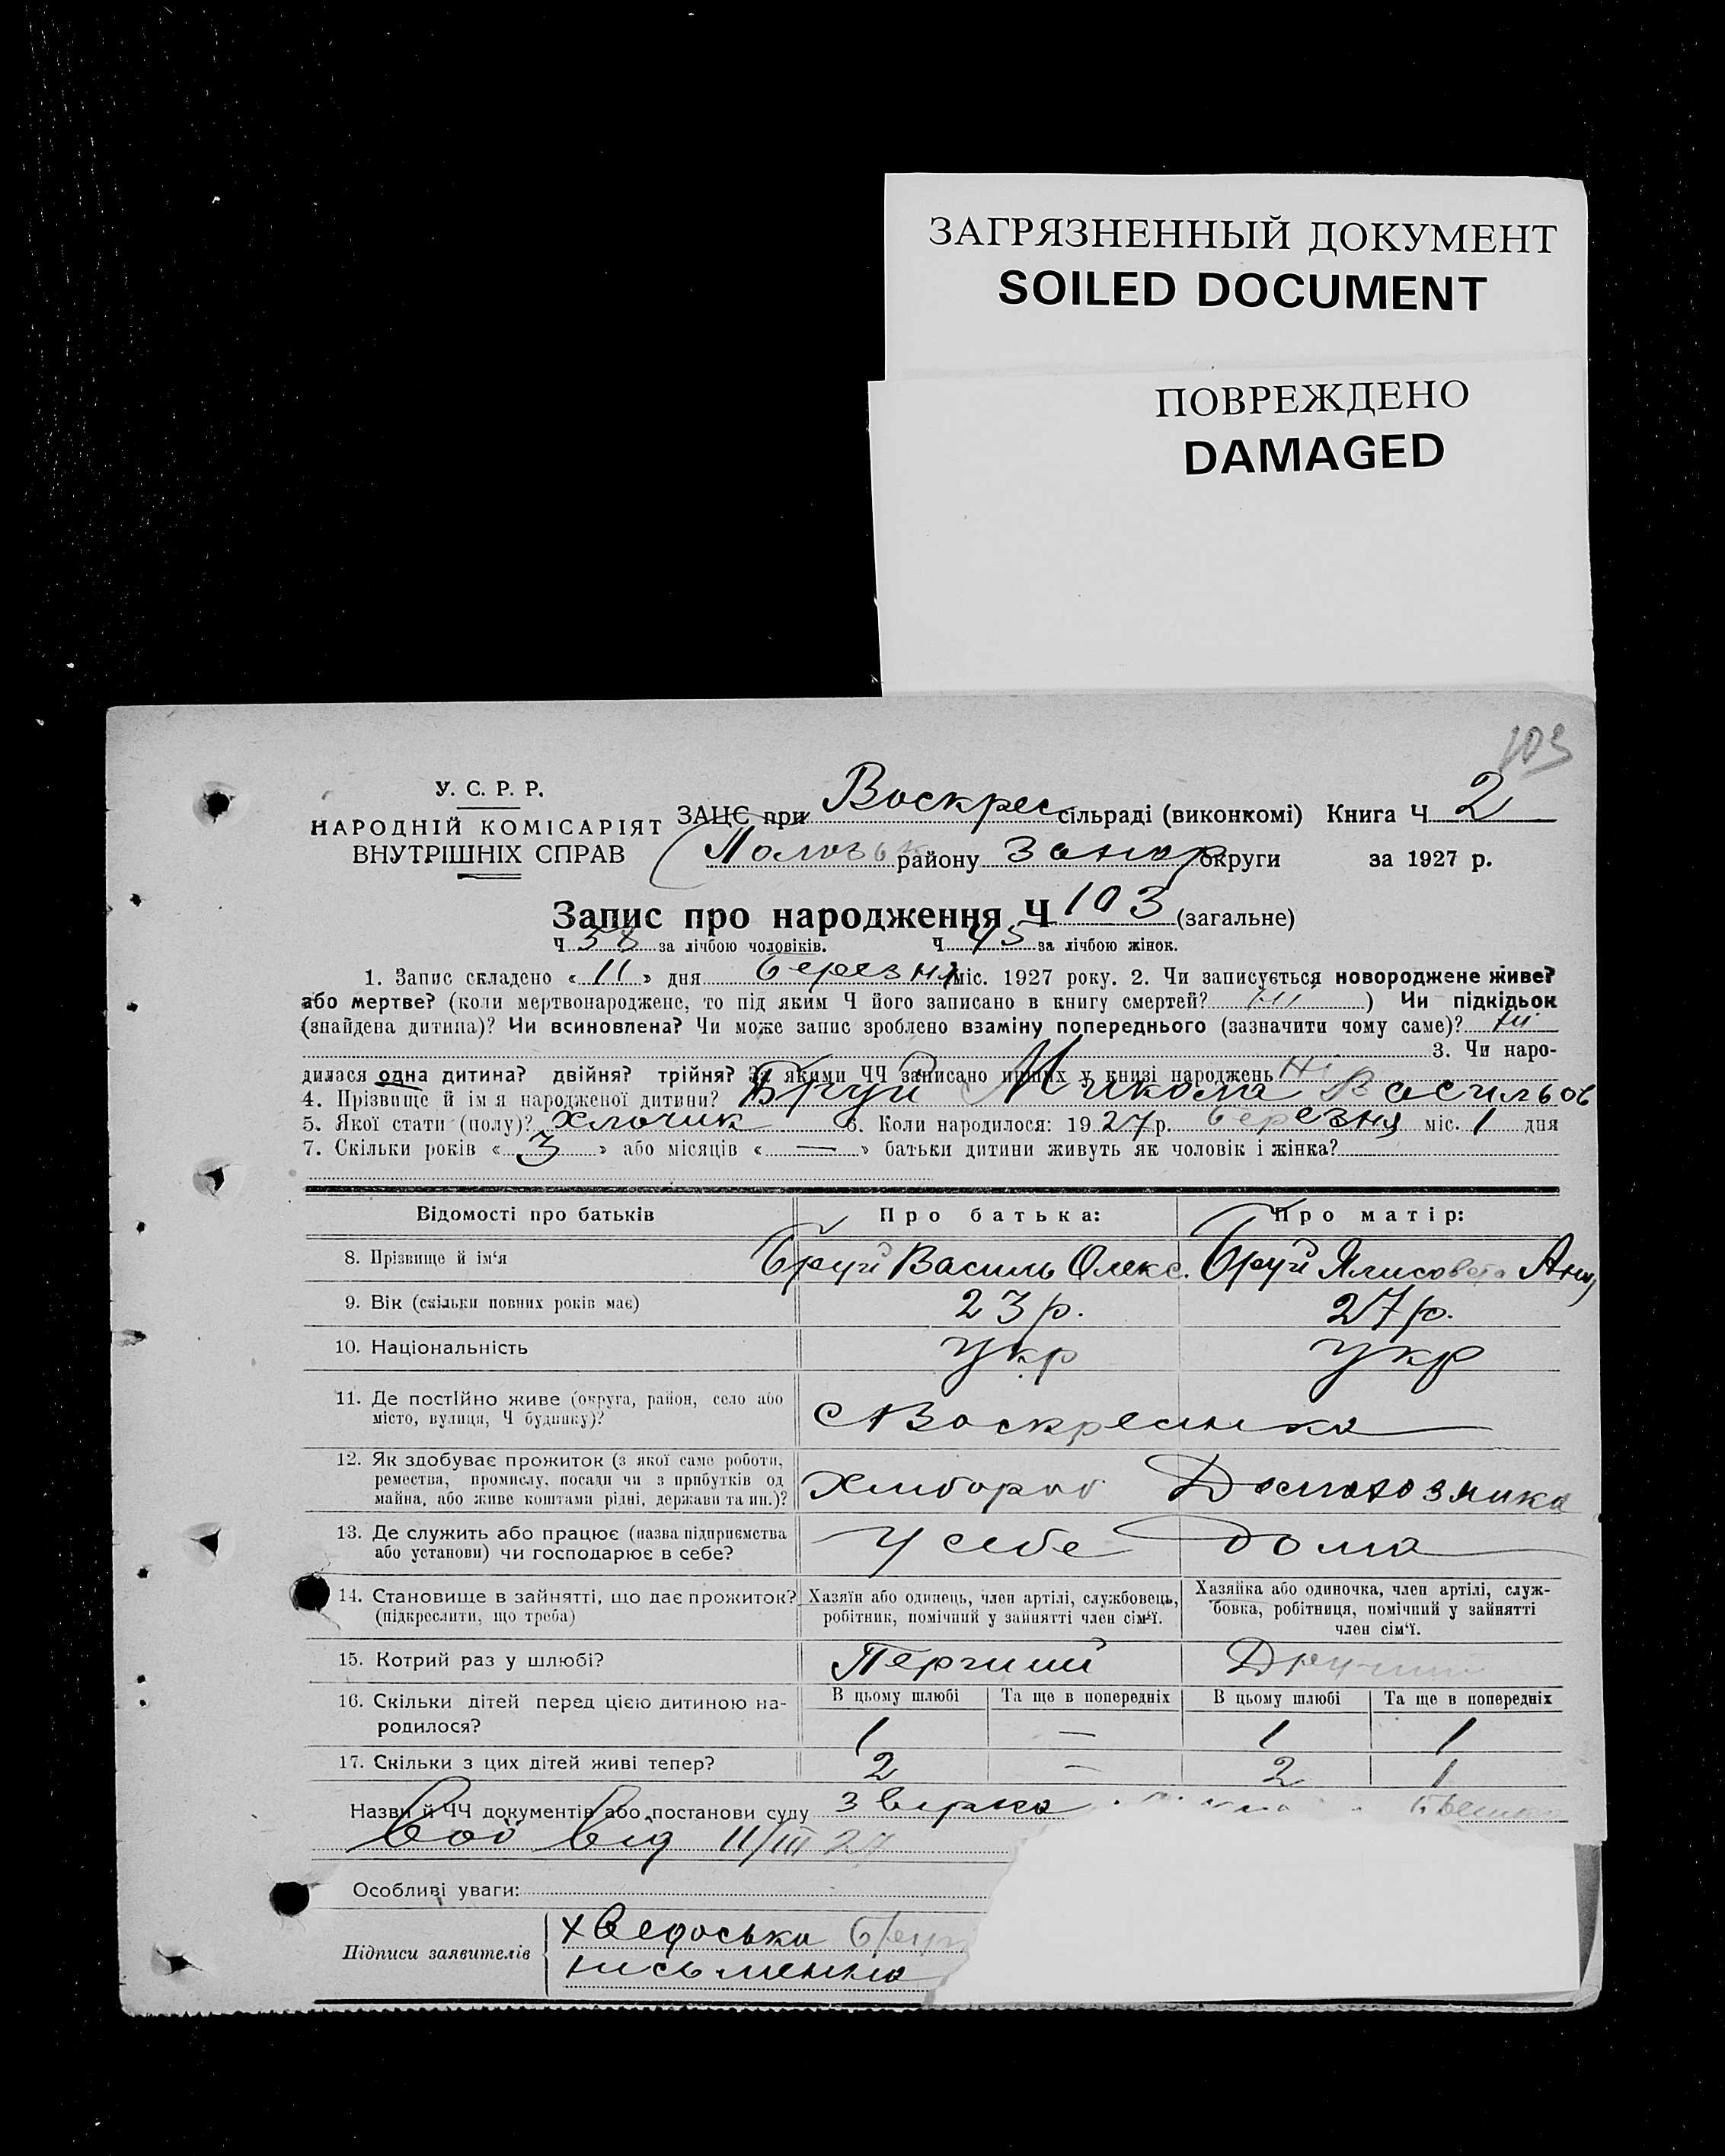 ЗАГРЯЗНЕННЫЙ ДОКУМЕНТ
SOILED DOCUMENT
ПОВРЕЖДЕНО
DAMAGED
103
У. С. Р. Р.
НАРОДНІЙ КОМІСАРІЯТ
ВНУТРІШНІХ СПРАВ
ЗАЦС при Воскрес сільраді (виконкомі) Книга Ч 2
району Запор округи за 1927 р.
Запис про народження Ч 103 (загальне)
Ч 58 за лічбою чоловіків. Ч 45 за лічбою жінок.
1. Запис складено « 11 » дня березня міс. 1927 року. 2. Чи записується новороджене живе?
або мертве? (коли мертвонароджене, то під яким Ч його записано в книгу смертей? ні ) Чи підкідьок
(знайдена дитина)? Чи всиновлена? Чи може запис зроблено взаміну попереднього (зазначити чому саме)? ні
3. Чи наро-
дилася одна дитина? двійня? трійня? За якими ЧЧ записано инших у книзі народжень Ні
4. Прізвище й ім я народженої дитини? Бруй Микола Васильов
5. Якої стати (полу)? Хлопчик 6. Коли народилося: 1927 р. березня міс. 1 дня
7. Скільки років « 3 » або місяців « — » батьки дитини живуть як чоловік і жінка?
Відомості про батьків Про батька: Про матір:
8. Прізвище й ім‘я Бруй Василь Олекс. Бруй
9. Вік (скільки повних років має) 23 р. 27 р.
10. Національність Укр Укр
11. Де постійно живе (округа, район, село або
місто, вулиця, Ч будинку)? с Воскресинка
12. Як здобуває прожиток (з якої саме роботи,
ремества, промислу, посади чи з прибутків од
майна, або живе коштами рідні, держави та ин.)? Хлибороб
13. Де служить або працює (назва підприємства
або установи) чи господарює в себе? У себе дома
14. Становище в зайнятті, що дає прожиток?
(підкреслити, що треба)
Хазяїн або одинець, член артілі, службовець,
робітник, помічний у зайнятті член сім‘ї.
Хазяйка або одиночка, член артілі, служ-
бовка, робітниця, помічний у зайнятті
член сім‘ї.
15. Котрий раз у шлюбі?
16. Скільки дітей перед цією дитиною на-
родилося?
В цьому шлюбі Та ще в попередніх В цьому шлюбі Та ще в попередніх
1 — 1 1
17. Скільки з цих дітей живі тепер? 2 — 2 1
Назви й ЧЧ документів або постанови суду
від 11/III 27
Особливі уваги:
Підписи заявителів Хведоська
письменна